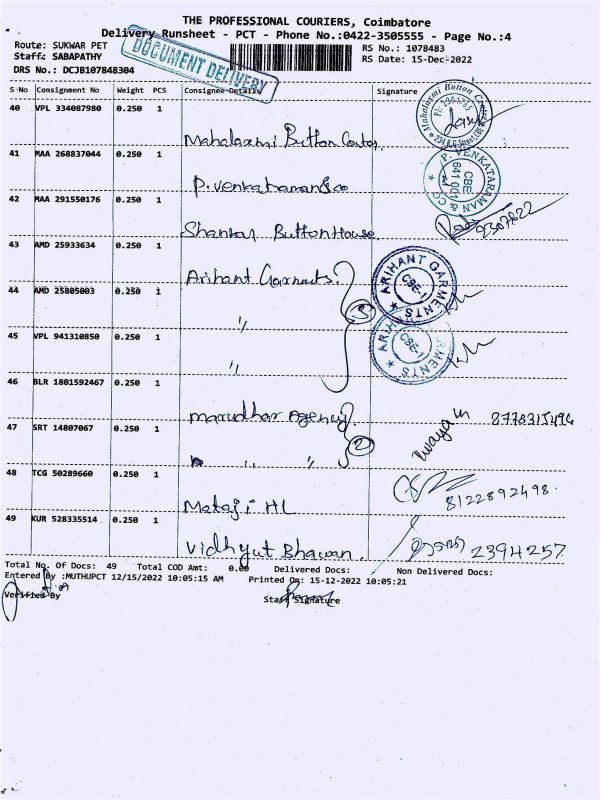 THE PROFESSIONAL COURIERS, Coimbatore
Delivery Runsheet - PCT - Phone No.:0422-3505555 - Page No.:4
Route: SUKWAR PET
RS No.: 1078483
Staff: SABAPATHY
RS Date: 15-Dec-2022
DRS No.: DCJB107848304
DOCUMENT DELIVERY
S No Consignment No Weight PCS Consignee Details Signature
40 VPL 334087980 0.250 1
Mahalaxmi Button Center
Mahalaxmi Button
41 MAA 268837044 0.250 1
P. Venkataraman & co
P. VENKATARAMAN & CO
CBE
641 001
42 MAA 291550176 0.250 1
Shankar Button House
9307822
43 AMD 25933634 0.250 1
Arihant Garments
3
ARIHANT GARMENTS
CBE-1
44 AMD 25805003 0.250 1
"
ARIHANT GARMENTS
CBE-1
45 VPL 941310850 0.250 1
"
46 BLR 1801592467 0.250 1
Marudhar Agency
2
8778315496
47 SRT 14807067 0.250 1
" "
48 TCG 50289660 0.250 1
Mataji HL
8122892498.
49 KUR 528335514 0.250 1
Vidhyut Bhawan.
2394257
Total No. Of Docs: 49 Total COD Amt: 0.00 Delivered Docs: Non Delivered Docs:
Entered By :MUTHUPCT 12/15/2022 10:05:15 AM Printed On: 15-12-2022 10:05:21
Verified By
Staff Signature